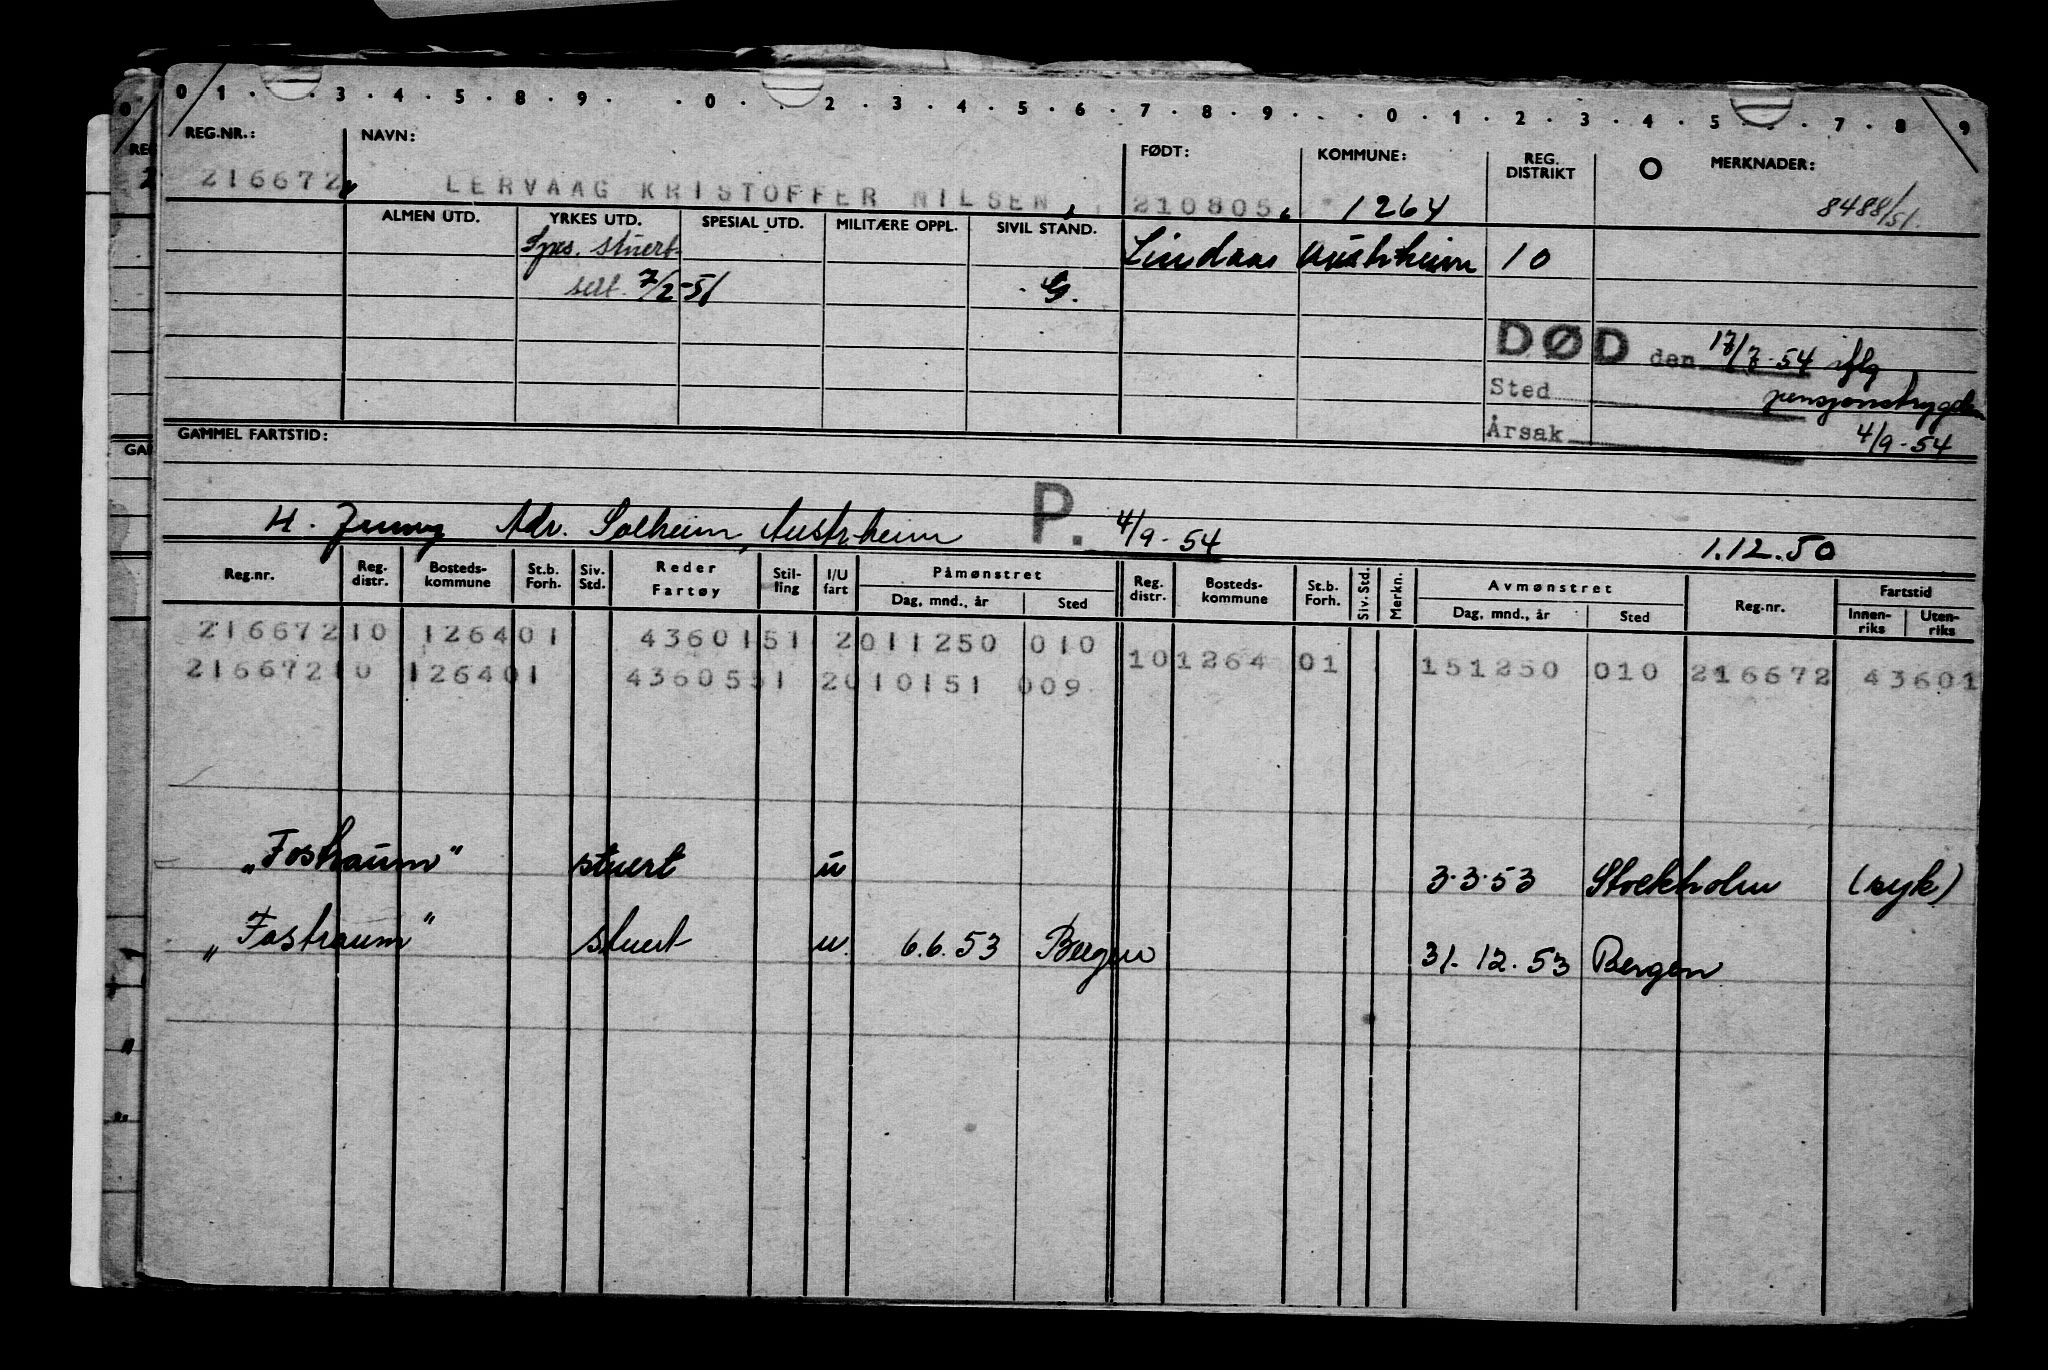 0 1 . . . 3 . 4 . 5 . 8 . 9 . . 0 . . 2 . 3 . 4 . 5 . 6 . 7 . 8 . 9 . . . 0 . 1 . 2 . 3 . 4 . 5 . . . 7 . 8 9
REG.NR.: NAVN: FØDT: KOMMUNE: REG. DISTRIKT O MERKNADER:
216672 LERVAAG KRISTOFFER NILSEN 210805 1264 8488/51.
ALMEN UTD. YRKES UTD. SPESIAL UTD. MILITÆRE OPPL. SIVIL STAND.
stuert Lindaas Austrheim 10
sert. 7/2-51 G.
DØD den 17/7-54 iflg
Sted pensjonstrygden
Årsak 4/9-54
GAMMEL FARTSTID:
H. Adr. Solheim, Austrheim P. 4/9-54 1.12.50
Reg.nr. Reg. distr. Bosteds-kommune St.b. Forh. Siv. Std. Reder Fartøy Stil-ling I/U fart Påmønstret Reg. distr. Bosteds-kommune St.b. Forh. Siv. Std. Merkn. Avmønstret Reg.nr. Fartstid
Dag, mnd., år Sted Dag, mnd., år Sted Innen-riks Uten-riks
216672 10 1264 01 43601 51 2 011250 010 10 1264 01 151250 010 216672 43601
216672 10 1264 01 43605 51 2 010151 009
„Fostraum" stuert u 3.3.53 Stockholm (syk)
„Fostraum" stuert u. 6.6.53 Bergen 31.12.53 Bergen